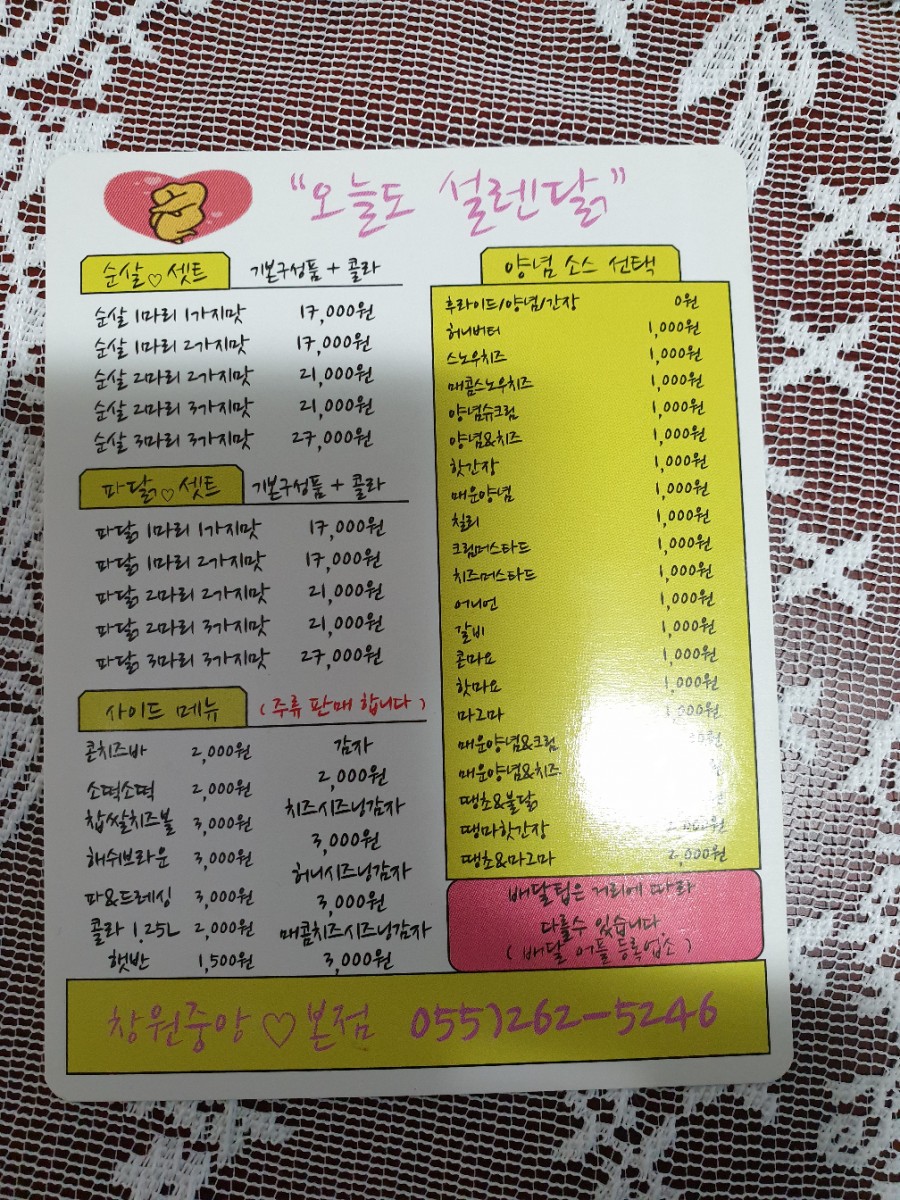 "오늘도 설렌닭"
순살♡셋트 기본구성품 + 콜라
순살 1마리 1가지맛 17,000원
순살 1마리 2가지맛 17,000원
순살 2마리 2가지맛 21,000원
순살 2마리 3가지맛 21,000원
순살 3마리 3가지맛 27,000원
파닭♡셋트 기본구성품 + 콜라
파닭 1마리 1가지맛 17,000원
파닭 1마리 2가지맛 17,000원
파닭 2마리 2가지맛 21,000원
파닭 2마리 3가지맛 21,000원
파닭 3마리 3가지맛 27,000원
사이드 메뉴 (주류 판매 합니다)
콜치즈바 2,000원
소떡소떡 2,000원
찹쌀치즈볼 3,000원
해쉬브라운 3,000원
파&드레싱 3,000원
콜라 1.25L 2,000원
햇반 1,500원
감자
2,000원
치즈시즈닝감자
3,000원
허니시즈닝감자
3,000원
매콤치즈시즈닝감자
3,000원
양념 소스 선택
후라이드/양념/간장 0원
허니버터 1,000원
스노우치즈 1,000원
매콤스노우치즈 1,000원
양념슈크림 1,000원
양념&치즈 1,000원
핫간장 1,000원
매운양념 1,000원
칠리 1,000원
크림머스타드 1,000원
치즈머스타드 1,000원
어니언 1,000원
갈비 1,000원
콘마요 1,000원
핫마요 1,000원
마그마 1,000원
매운양념&크림
매운양념&치즈
땡초&불닭
땡마핫간장
땡초&마그마 2,000원
배달팁은 거리에 따라
다를수 있습니다.
(배달 어플 등록업소)
창원중앙♡본점 055)262-5246